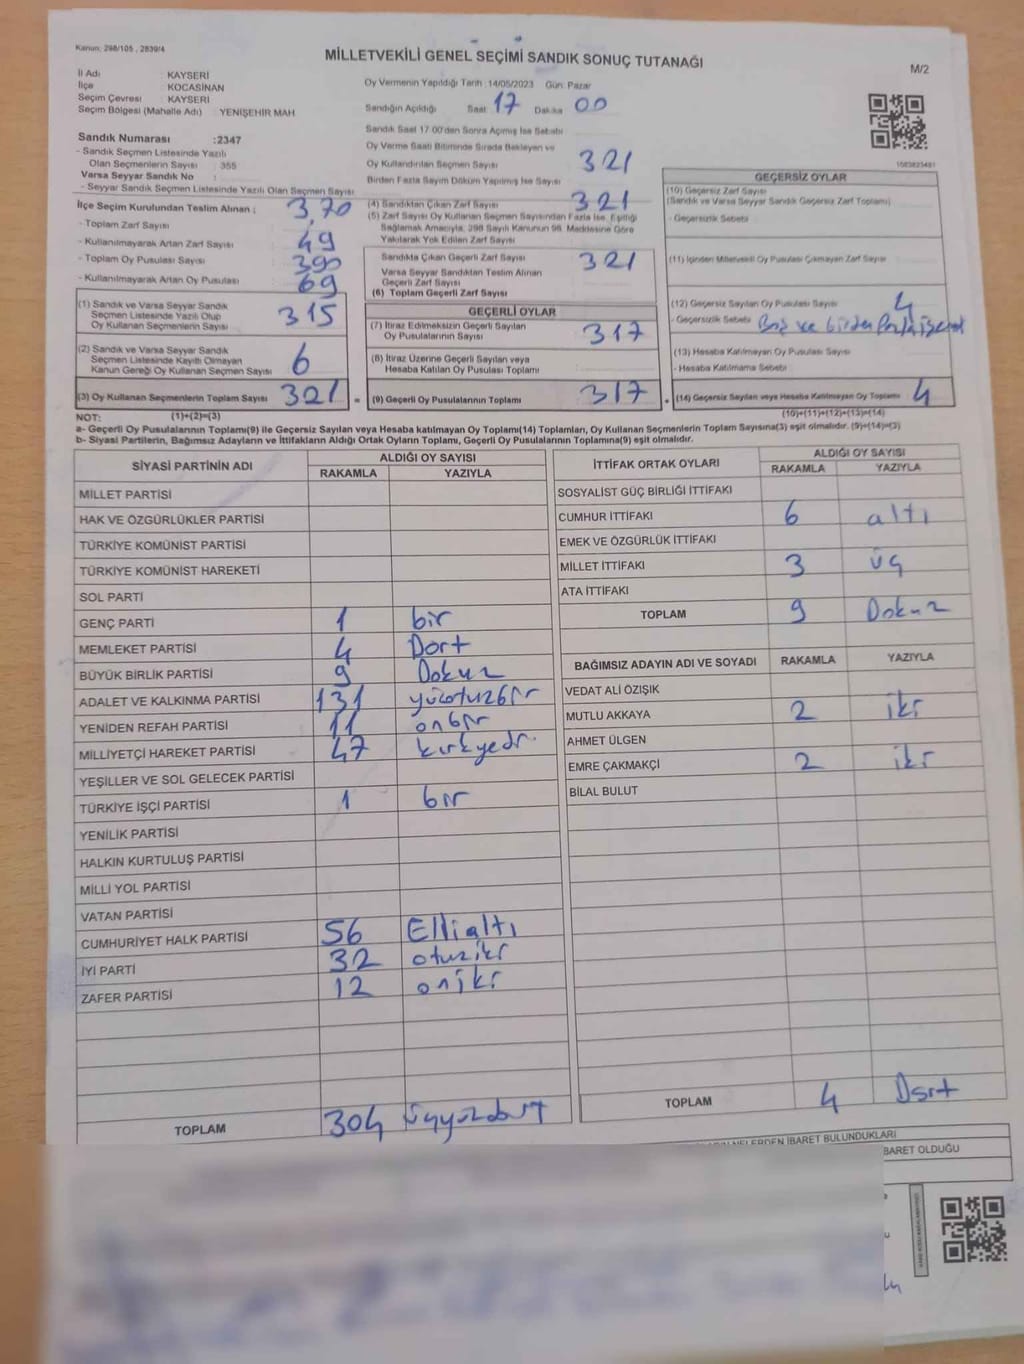 Kanun: 298/105 , 2839/4
MİLLETVEKİLİ GENEL SEÇİMİ SANDIK SONUÇ TUTANAĞI
M/2
İl Adı : KAYSERİ
İlçe : KOCASİNAN
Seçim Çevresi : KAYSERİ
Seçim Bölgesi (Mahalle Adı) : YENİŞEHİR MAH
Oy Vermenin Yapıldığı Tarih :14/05/2023 Gün: Pazar
Sandığın Açıldığı Saat 17 Dakika 00
Sandık Saat 17:00'den Sonra Açılmış İse Sebebi
Oy Verme Saati Bitiminde Sırada Bekleyen ve
Oy Kullandırılan Seçmen Sayısı 321
Birden Fazla Sayım Döküm Yapılmış İse Sayısı
Sandık Numarası :2347
- Sandık Seçmen Listesinde Yazılı
Olan Seçmenlerin Sayısı : 355
Varsa Seyyar Sandık No :
- Seyyar Sandık Seçmen Listesinde Yazılı Olan Seçmen Sayısı
İlçe Seçim Kurulundan Teslim Alınan :
- Toplam Zarf Sayısı 370
- Kullanılmayarak Artan Zarf Sayısı 49
- Toplam Oy Pusulası Sayısı 390
- Kullanılmayarak Artan Oy Pusulası 69
(1) Sandık ve Varsa Seyyar Sandık
Seçmen Listesinde Yazılı Olup
Oy Kullanan Seçmenlerin Sayısı 315
(2) Sandık ve Varsa Seyyar Sandık
Seçmen Listesinde Kayıtlı Olmayan
Kanun Gereği Oy Kullanan Seçmen Sayısı 6
(3) Oy Kullanan Seçmenlerin Toplam Sayısı 321 =
(1)+(2)=(3)
(4) Sandıktan Çıkan Zarf Sayısı 321
(5) Zarf Sayısı Oy Kullanan Seçmen Sayısından Fazla İse, Eşitliği
Sağlamak Amacıyla, 298 Sayılı Kanunun 98. Maddesine Göre
Yakılarak Yok Edilen Zarf Sayısı
Sandıkta Çıkan Geçerli Zarf Sayısı 321
Varsa Seyyar Sandıktan Teslim Alınan
Geçerli Zarf Sayısı
(6) Toplam Geçerli Zarf Sayısı
GEÇERLİ OYLAR
(7) İtiraz Edilmeksizin Geçerli Sayılan
Oy Pusulalarının Sayısı 317
(8) İtiraz Üzerine Geçerli Sayılan veya
Hesaba Katılan Oy Pusulası Toplamı
(9) Geçerli Oy Pusulalarının Toplamı 317 +
GEÇERSİZ OYLAR
(10) Geçersiz Zarf Sayısı
(Sandık ve Varsa Seyyar Sandık Geçersiz Zarf Toplamı)
- Geçersizlik Sebebi
(11) İçinden Milletvekili Oy Pusulası Çıkmayan Zarf Sayısı
(12) Geçersiz Sayılan Oy Pusulası Sayısı 4
- Geçersizlik Sebebi Boş ve birden fazla işaret
(13) Hesaba Katılmayan Oy Pusulası Sayısı
- Hesaba Katılmama Sebebi
(14) Geçersiz Sayılan veya Hesaba Katılmayan Oy Toplamı 4
(10)+(11)+(12)+(13)=(14)
NOT:
a- Geçerli Oy Pusulalarının Toplamı(9) ile Geçersiz Sayılan veya Hesaba katılmayan Oy Toplamı(14) Toplamları, Oy Kullanan Seçmenlerin Toplam Sayısına(3) eşit olmalıdır. (9)+(14)=(3)
b- Siyasi Partilerin, Bağımsız Adayların ve İttifakların Aldığı Ortak Oyların Toplamı, Geçerli Oy Pusulalarının Toplamına(9) eşit olmalıdır.
SİYASİ PARTİNİN ADI ALDIĞI OY SAYISI
RAKAMLA YAZIYLA
MİLLET PARTİSİ
HAK VE ÖZGÜRLÜKLER PARTİSİ
TÜRKİYE KOMÜNİST PARTİSİ
TÜRKİYE KOMÜNİST HAREKETİ
SOL PARTİ
GENÇ PARTİ 1 bir
MEMLEKET PARTİSİ 4 Dört
BÜYÜK BİRLİK PARTİSİ 9 Dokuz
ADALET VE KALKINMA PARTİSİ 131 yüzotuzbir
YENİDEN REFAH PARTİSİ 11 onbir
MİLLİYETÇİ HAREKET PARTİSİ 47 kırkyedi
YEŞİLLER VE SOL GELECEK PARTİSİ
TÜRKİYE İŞÇİ PARTİSİ 1 bir
YENİLİK PARTİSİ
HALKIN KURTULUŞ PARTİSİ
MİLLİ YOL PARTİSİ
VATAN PARTİSİ
CUMHURİYET HALK PARTİSİ 56 Ellialtı
İYİ PARTİ 32 otuziki
ZAFER PARTİSİ 12 oniki
TOPLAM 304 üçyüzdört
İTTİFAK ORTAK OYLARI ALDIĞI OY SAYISI
RAKAMLA YAZIYLA
SOSYALİST GÜÇ BİRLİĞİ İTTİFAKI
CUMHUR İTTİFAKI 6 altı
EMEK VE ÖZGÜRLÜK İTTİFAKI
MİLLET İTTİFAKI 3 üç
ATA İTTİFAKI
TOPLAM 9 Dokuz
BAĞIMSIZ ADAYIN ADI VE SOYADI RAKAMLA YAZIYLA
VEDAT ALİ ÖZIŞIK
MUTLU AKKAYA 2 iki
AHMET ÜLGEN
EMRE ÇAKMAKÇİ 2 iki
BİLAL BULUT
TOPLAM 4 Dört
NELERDEN İBARET BULUNDUKLARI
BARET OLDUĞU